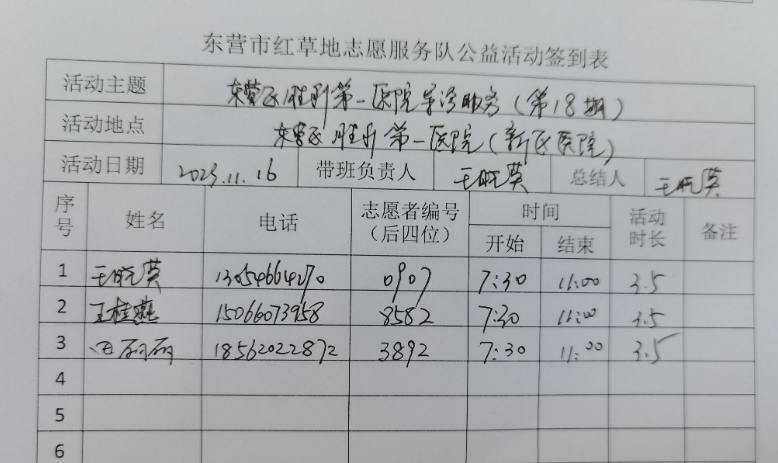 东营市红草地志愿服务队公益活动签到表
活动主题 东营区胜利第一医院导浴助房(第18期)
活动地点 东营区胜利第一医院(新区医院)
活动日期 2023.11.16 带班负责人 王晓英 总结人 王晓英
序号 姓名 电话 志愿者编号(后四位) 时间 开始 结束 活动时长 备注
1 王晓英 13054664270 0907 7:30 11:00 3.5
2 王桂燕 15066073958 8582 7:30 11:00 3.5
3 18562022872 3892 7:30 11:00 3.5
4
5
6